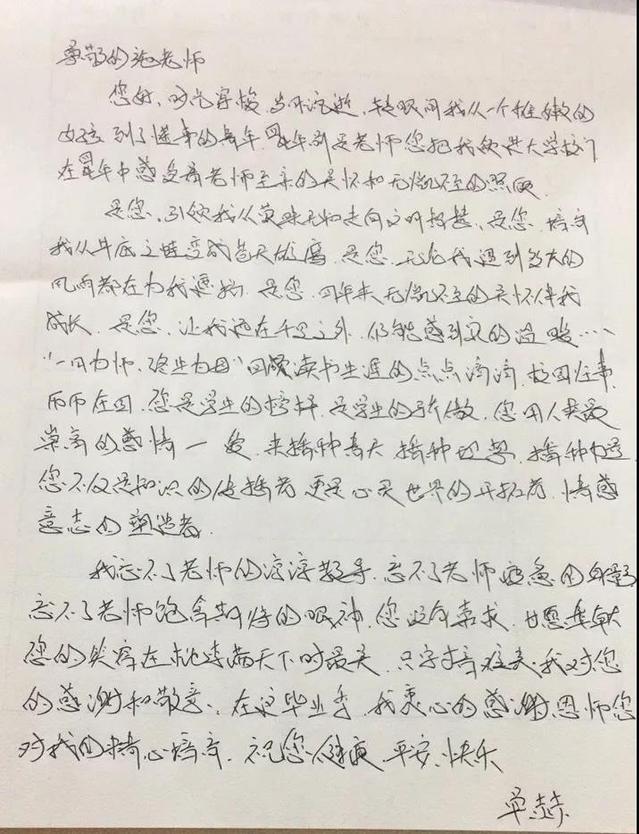 尊敬的施老师
您好，时光穿梭，岁月流逝，转眼间我从一个稚嫩的
女孩到了懂事的青年，四年前是老师您把我领进大学校门
在四年中感受着老师至亲的关怀和无微不至的照顾
是您，引领我从蒙昧无知走向文明智慧，是您，培育
我从井底之蛙变成昔天雄鹰，是您，无论我遇到多大的
风雨都在为我遮挡，是您，四年来无微不至的关怀伴我
成长，是您，让我远在千里之外，仍能感到家的温暖……
“一日为师，终生为母”回顾读书生涯的点点滴滴，校园往事
历历在目，您是学生的榜样，是学生的骄傲，您用人类最
崇高的感情一爱，来播种春天，播种理想，播种力量
您不仅是知识的传播者，更是心灵世界的开拓者，情感
意志的塑造者。
我忘不了老师的谆谆教导，忘不了老师疲惫的身影
忘不了老师饱含期待的眼神，您没有索求，甘愿奉献
您的笑容在桃李满天下时最美，只字片难表我对您
的感谢和敬意，在这毕业季，我衷心的感谢恩师您
对我的精心培育，祝您健康，平安，快乐